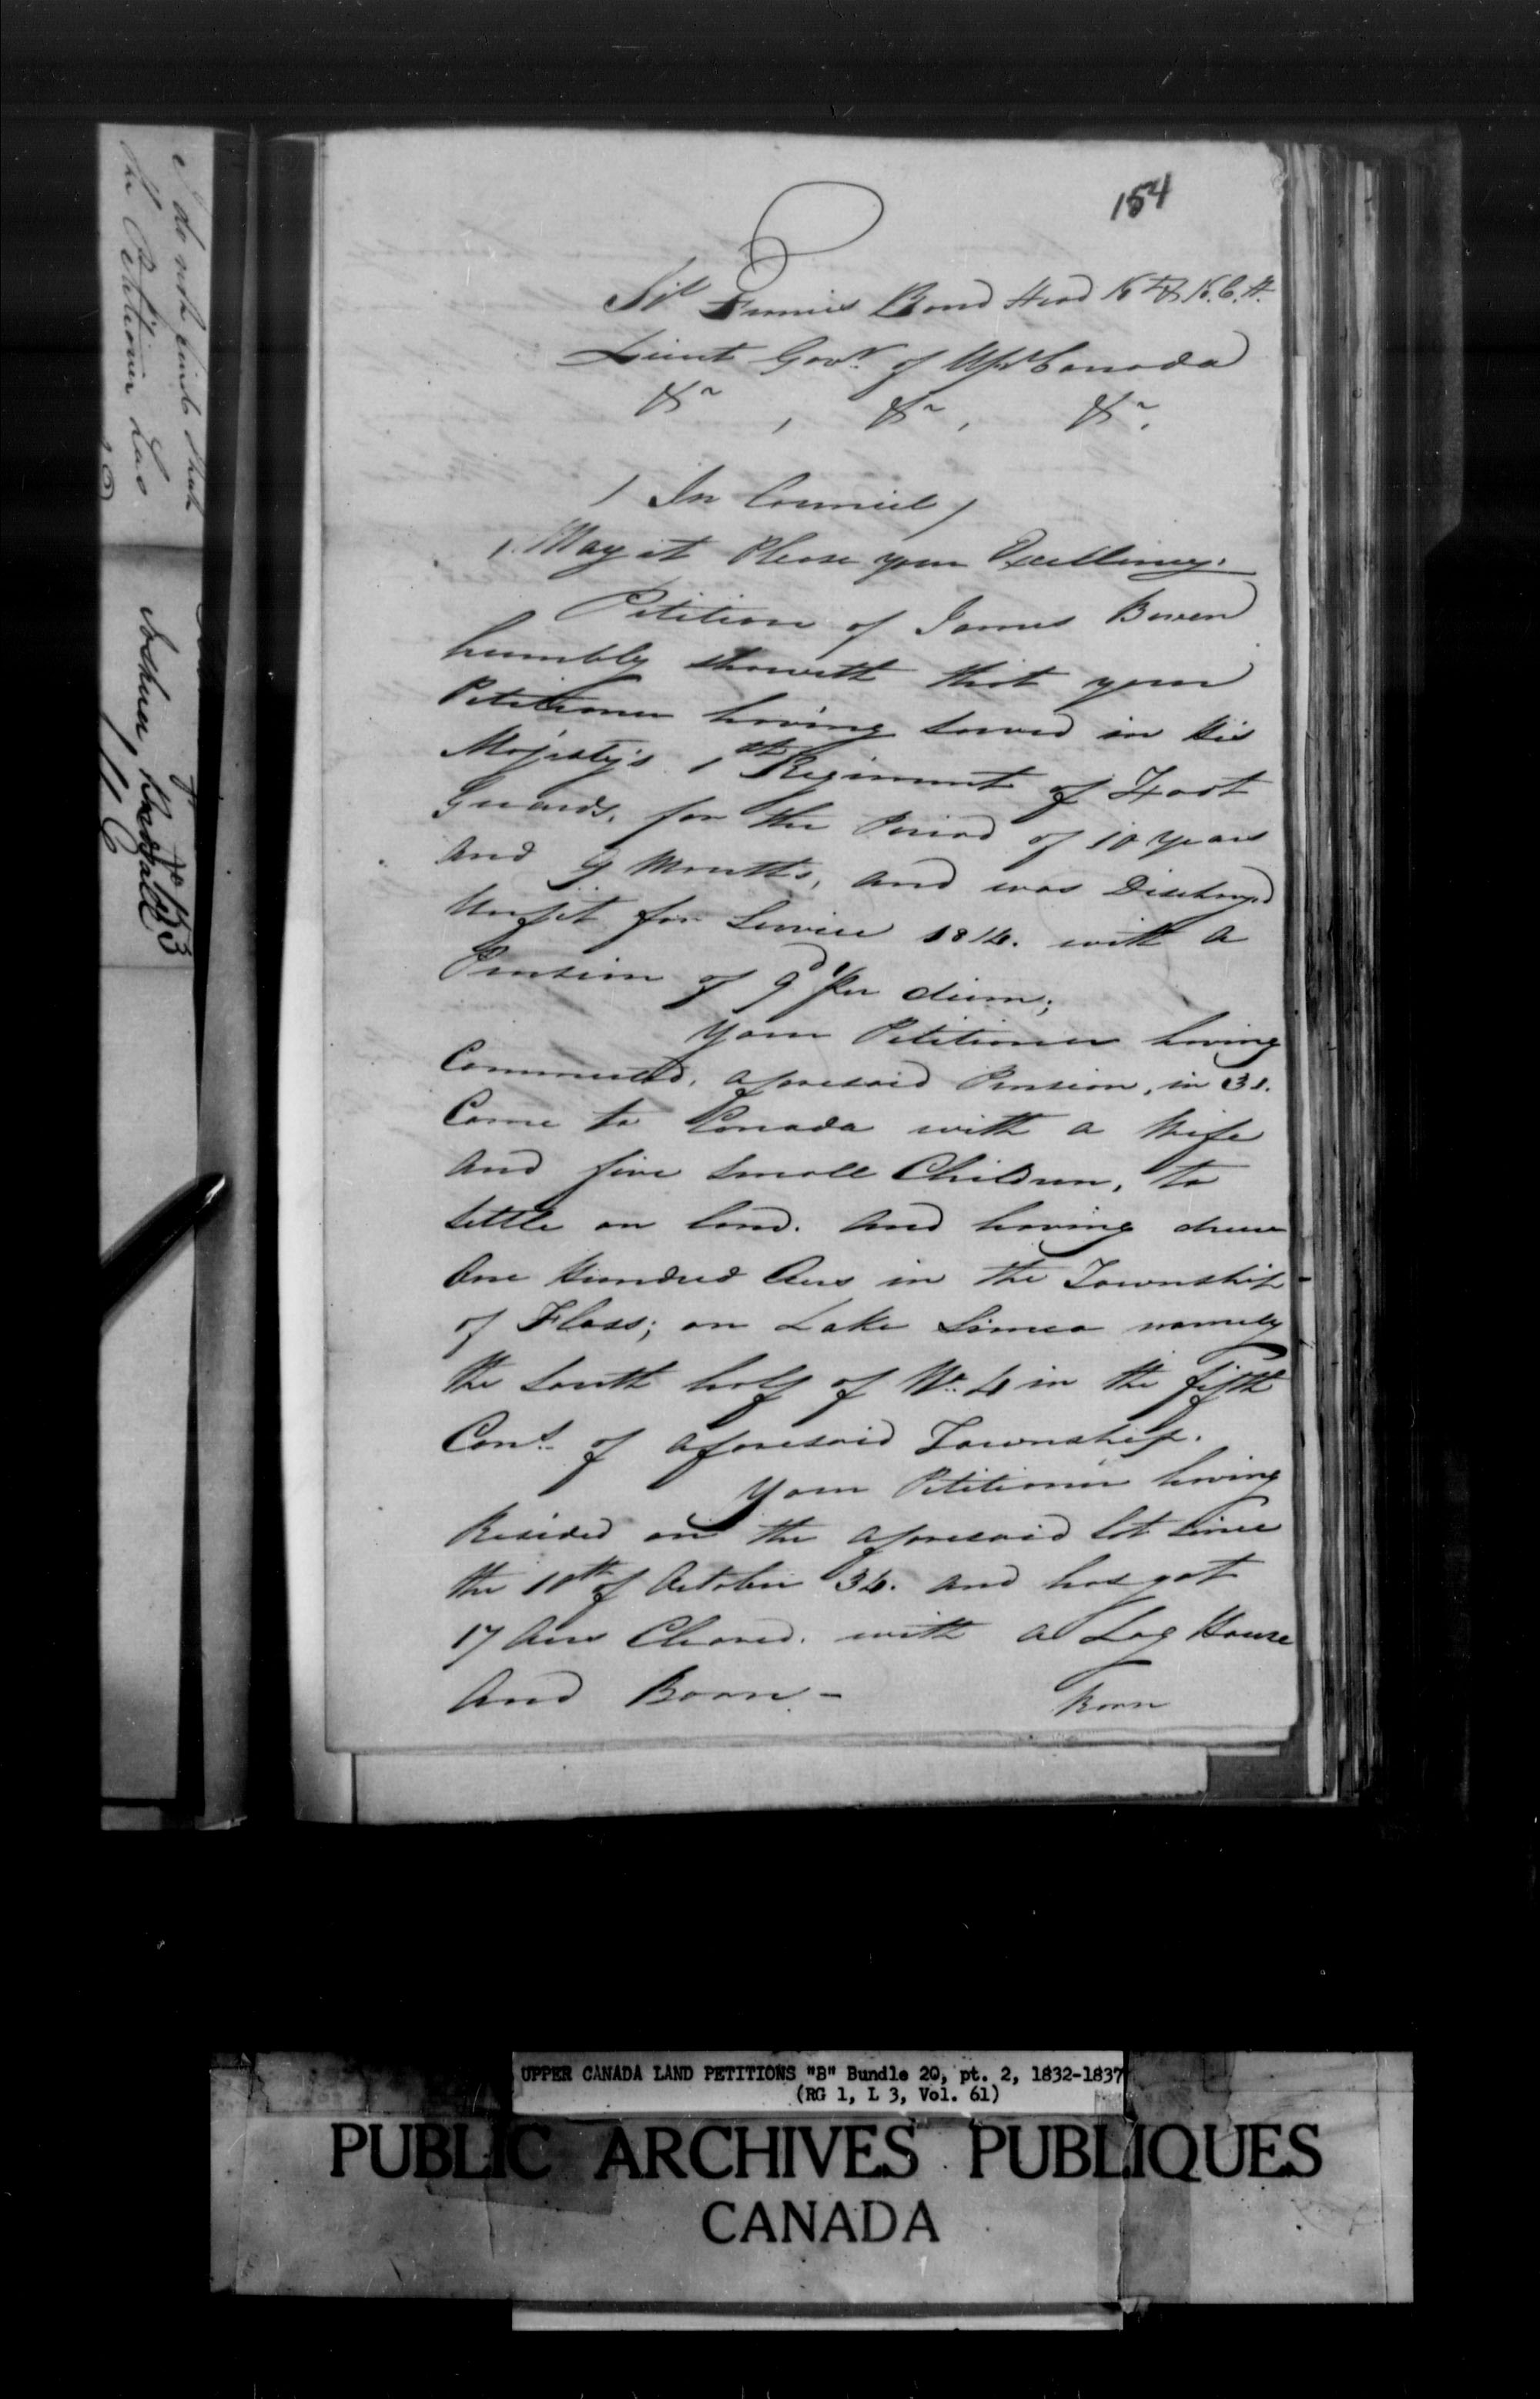 154
Sir Francis Bond Head Kt & K.C.H.
Lieut Govr. of Upr Canada
&c, &c, &c.
/ In Council /
May it Please your Excellency.
Petition of James Bowen
humbly showeth that your
Petitioner having served in His
Majesty's 1st Regiment of Foot
Guards, for the Period of 10 years
and 9 Months, and was Discharged
Unfit for Service 1814. with a
Pension of 9d per diem;
Your Petitioner having
Commuted, aforesaid Pension, in 31.
Came to Canada with a Wife
and five small Children, to
settle on land. and having drew
One Hundred Acres in the Township
of Floss; on Lake Simco namely
the South half of No. 4 in the fifth
Cons. of aforesaid Township.
Your Petitioner having
Resided on the aforesaid lot since
the 10th of October 34. and has got
17 Acres Cleared. with a Log House
And Barn -
Barn
I do not find that
the Petitioner has
Joshua
UC
No 153
UPPER CANADA LAND PETITIONS "B" Bundle 20, pt. 2, 1832-1837
(RG 1, L 3, Vol. 61)
PUBLIC ARCHIVES PUBLIQUES
CANADA